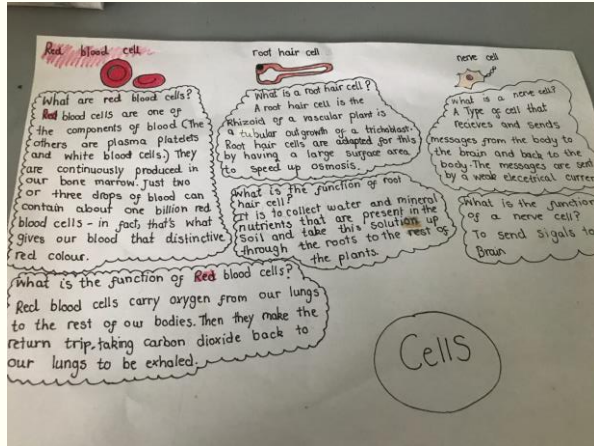 Red blood cell
What are red blood cells?
Red blood cells are one of
the components of blood (The
others are plasma platelets
and white blood cells.) They
are continuously produced in
our bone marrow. Just two
or three drops of blood can
contain about one billion red
blood cells - in fact, that's what
gives our blood that distinctive
red colour.
What is the function of Red blood cells?
Red blood cells carry oxygen from our lungs
to the rest of our bodies. Then they make the
return trip, taking carbon dioxide back to
our lungs to be exhaled.
root hair cell
What is a root hair cell?
A root hair cell is the
Rhizoid of a vascular plant is
a tubular outgrowth of a trichoblast.
Root hair cells are adapted for this
by having a large surface area
to speed up osmosis.
What is the function of root
hair cell?
It is to collect water and mineral
nutrients that are present in the
Soil and take this solution up
through the roots to the rest of
the plants.
nerve cell
What is a nerve cell?
A Type of cell that
recieves and sends
messages from the body to
the brain and back to the
body. The messages are sent
by a weak elecetrical curren
What is the function
of a nerve cell?
To send Sigals to
Brain
Cells